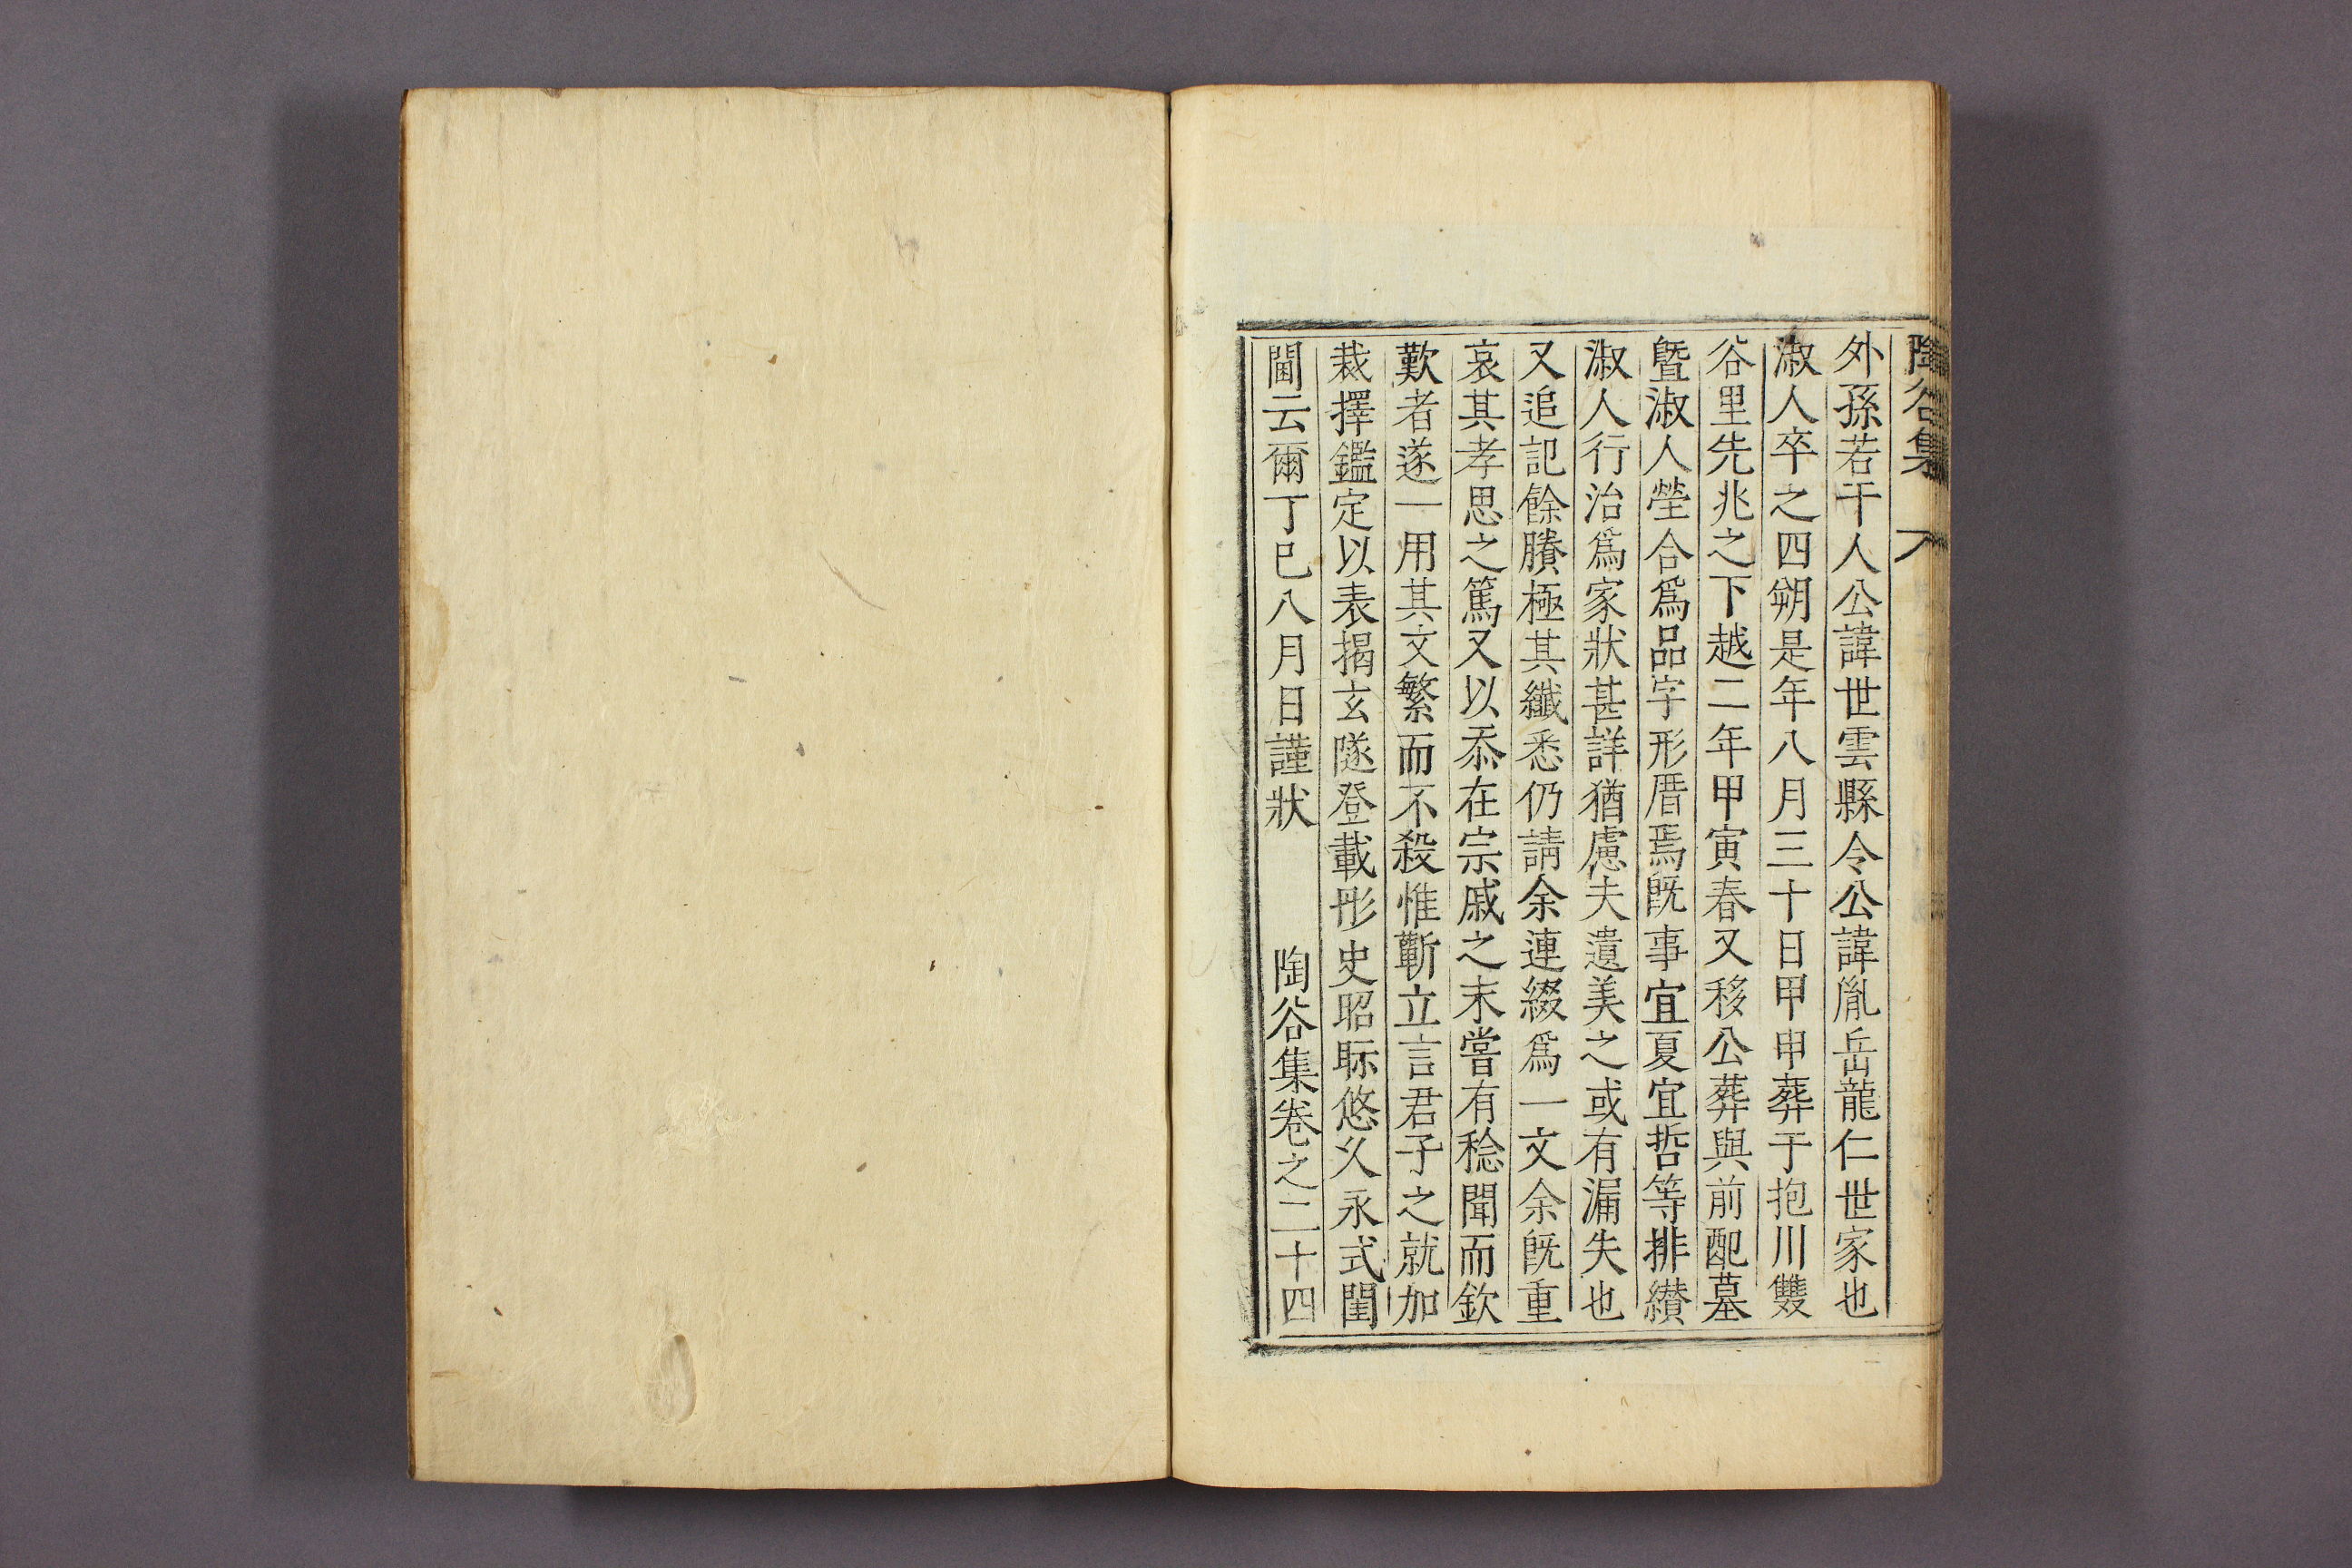 陶谷集
外孫若干人公諱世雲縣令公諱胤岳龍仁世家也
淑人卒之四朔是年八月三十日甲申葬于抱川雙
谷里先兆之下越二年甲寅春又移公葬與前配墓
曁淑人塋合爲品字形厝焉旣事宜夏宜哲等排纉
淑人行治爲家狀甚詳猶慮夫遺美之或有漏失也
又追記餘賸極其纖悉仍請余連綴爲一文余旣重
哀其孝思之篤又以忝在宗戚之末嘗有稔聞而欽
歎者遂一用其文繁而不殺惟蘄立言君子之就加
裁擇鑑定以表揭玄隧登載彤史昭眎悠久永式閨
閫云爾丁巳八月日謹狀
陶谷集卷之二十四